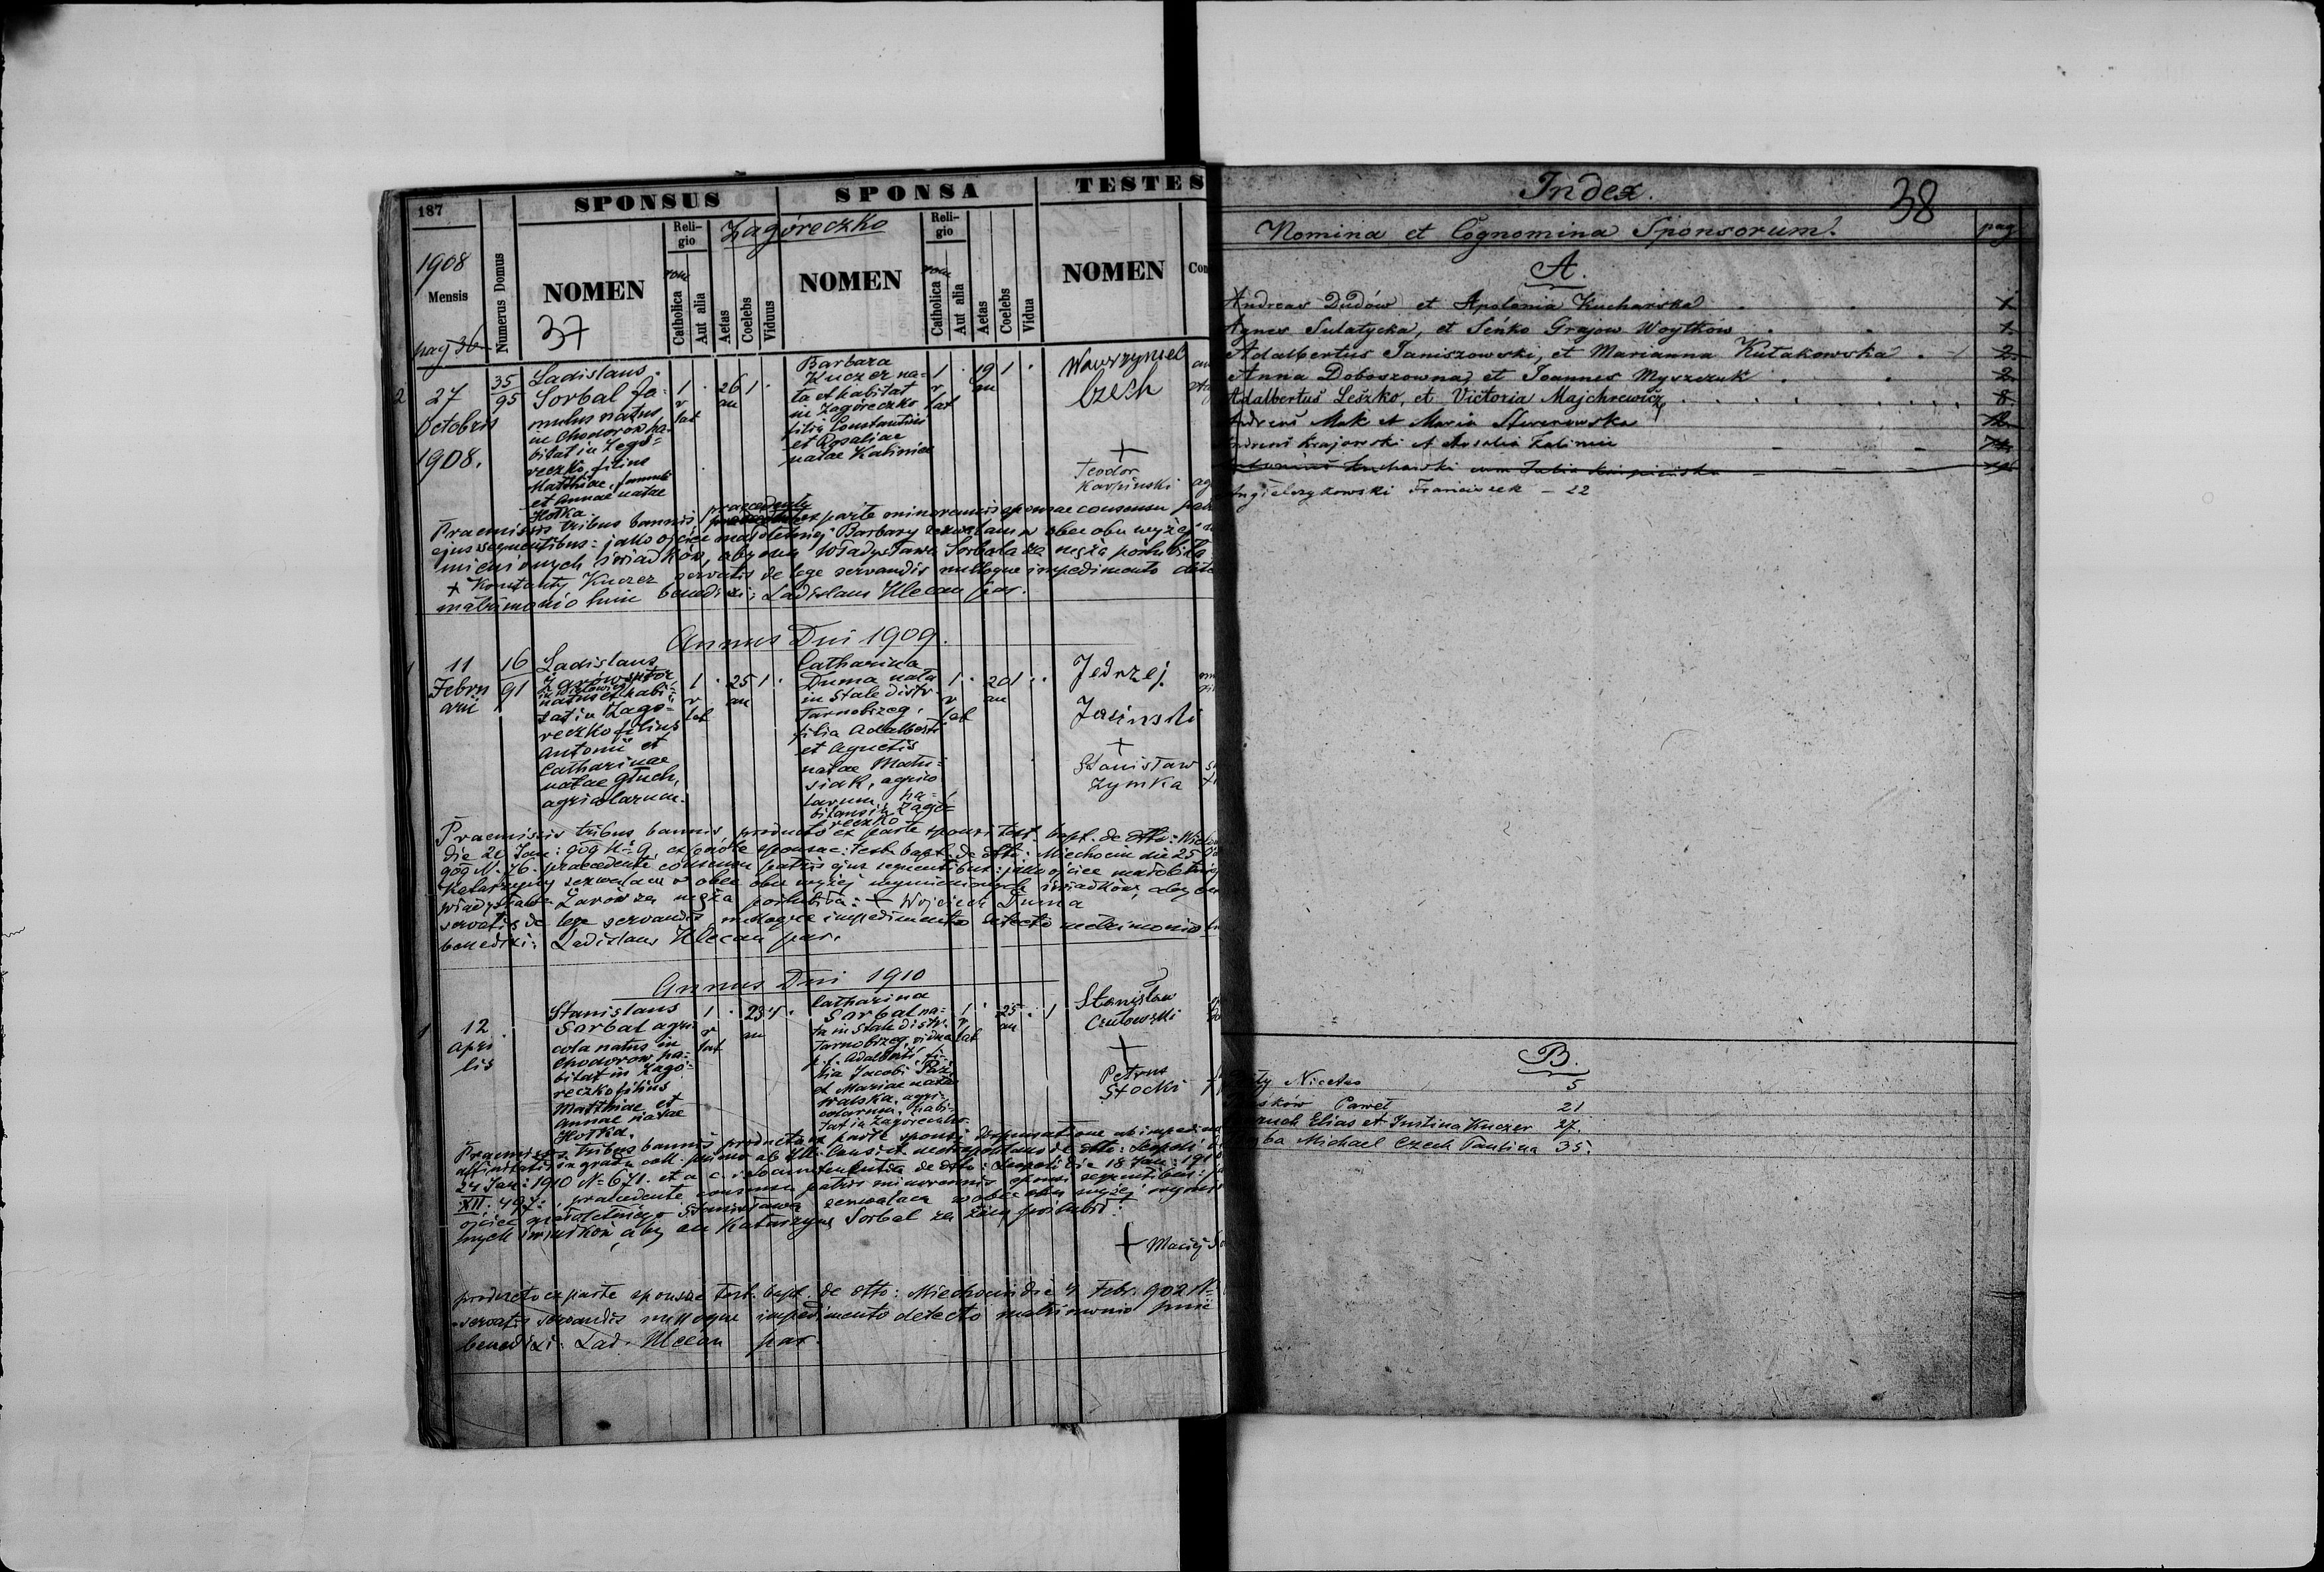 187
SPONSUS
SPONSA
TESTES
Zagóreczko
1908
Mensis
pag 36
Numerus Domus
NOMEN
37
Religio
Catholica rom
Aut alia
Aetas
Coelebs
Viduus
NOMEN
Religio
Catholica rom
Aut alia
Aetas
Coelebs
Vidua
NOMEN
Con
2
27
Octobris
1908.
35
95
Ladislaus
Sorbal fa-
mulus natus
in Chodorow ha-
bitat in Zagó-
reczko, filius
Matthiae, famuli
et Annae natae
Hotka.
1 r lat
26 an
1
Barbara
Kuczer na-
ta et habitat
in Zagóreczko
filia Constantini
et Rosaliae
natae Kalinice
1 r lat
19 an
1
Wawrzyniec
Czech
+
Teodor
Karpinski
Praemissis tribus bannis praecedente ex parte minorennis sponsae consensu
ejus sequentibus: jako ojciec małoletniej Barbary zezwalam w obec obu wyżej
mienionych świadków, aby ona Władysława Sorbala za męża poślubiła
+ Konstanty Kuczer servatis de lege servandis nulloque impedimento
matrimonio huic benedixi: Ladislaus Ulecan par.
Annus Dni 1909.
1
11
Febru
arii
16
91
Ladislaus
Żarów
natus et habi-
tat in Zagó-
reczko filius
Antonii et
Catharinae
natae Głuch,
agricolarum.
1 r lat
25 an
1
Catharina
Duma nata
in Stale distr
Tarnobrzeg,
filia Adalberti
et Agnetis
natae Matu-
siak, agrico
larum, ha-
bitans in Zagó-
reczko
1 r lat
20 an
1
Jedrzej
Jasinski
+
Stanisław
Zymka
Praemissis tribus bannis, producto ex parte sponsi test. bapt. de dtto:
die 21 Jan: 909 N: 9 ex parte sponsae: test. bapt. de dtto: Miechocin die 25
909 N. 76. praecedente consensu patris ejus sequentibus: jako ojciec małoletniej
Katarzyny zezwalam w obec obu wyżej wymienionych świadków, aby
Władysława Żarów za męża poślubiła: + Wojciech Duma
servatis de lege servandis nulloque impedimento detecto matrimonio
benedixi: Ladislaus Ulecan par.
Annus Dni 1910
1
12
Apri
lis
Stanislaus
Sorbal agri-
cola natus in
Chodorow ha-
bitat in Zagó-
reczko filius
Matthiae et
Annae natae
Hotka.
1 r lat
23 an
1
Catharina
Sorbal na-
ta in Stale distr.
Tarnobrzeg, vidua
p. f. Adalberti, fi-
lia Jacobi
et Mariae natae
Walska, agri-
colarum, habi-
tat in Zagóreczko
1 r lat
25 an
1
Stanisław
Czutowski
+
Petrus
Stocki
Praemissis tribus bannis producta ex parte sponsi dispensatione ab impedim
affinitatis in gradu coll. primo ab de dtto: Leopoli
24 Jan: 1910 N= 671. et a c. r. de dtto: Leopoli die 18 Jan: 1910
XII: 497: praecedente consensu patris minorennis sponsi sequentibus:
ojciec małoletniego Stanisława zezwalam w obec obu wyżej
nych świadków, aby on Katarzynę Sorbal za żonę poślubił:
+ Maciej
producto ex parte sponsae test. bapt. de dtto: Miechocin die 4 Febr. 902 N=
servatis servandis nulloque impedimento detecto matrimonio huic
benedixi: Lad. Ulecan par.
Index.
38
Nomina et Cognomina Sponsorum.
pag
A.
Andreas Dudów et Apolonia Kucharska 1
Agnes Sulatycka, et Seńko Grajow Woytków 1
Adalbertus Janiszowski, et Marianna Kułakowska 2
Anna Doboszowna, et Joannes Myszczuk 2
Adalbertus Leszko et Victoria Majchrewicz 8
Andreas Mak et Maria 12
Krajewski et Anastasia
Kucharski cum Julia Karpinska
Angielczykowski Franciszek - 22
B.
Nicetas 5
Paweł 21
Elias et Justina Kuczer 27.
Michael Czech Paulina 35.